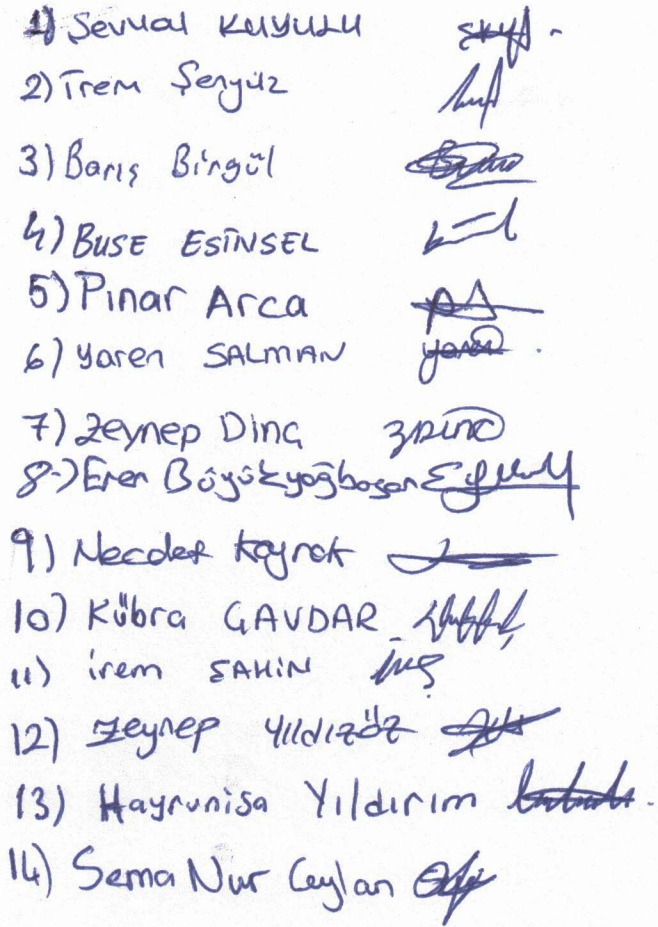 1) Şevval KUYULU
2) İrem Şenyüz
3) Barış Birgül
4) BUSE ESİNSEL
5) Pınar Arca
6) Yaren SALMAN
7) Zeynep Dinç
8-) Eren Büyükyağbasan
9) Necdet Kaynak
10) Kübra ÇAVDAR
11) irem ŞAHİN
12) Zeynep Yıldızöz
13) Hayrunisa Yıldırım
14) Sema Nur Ceylan